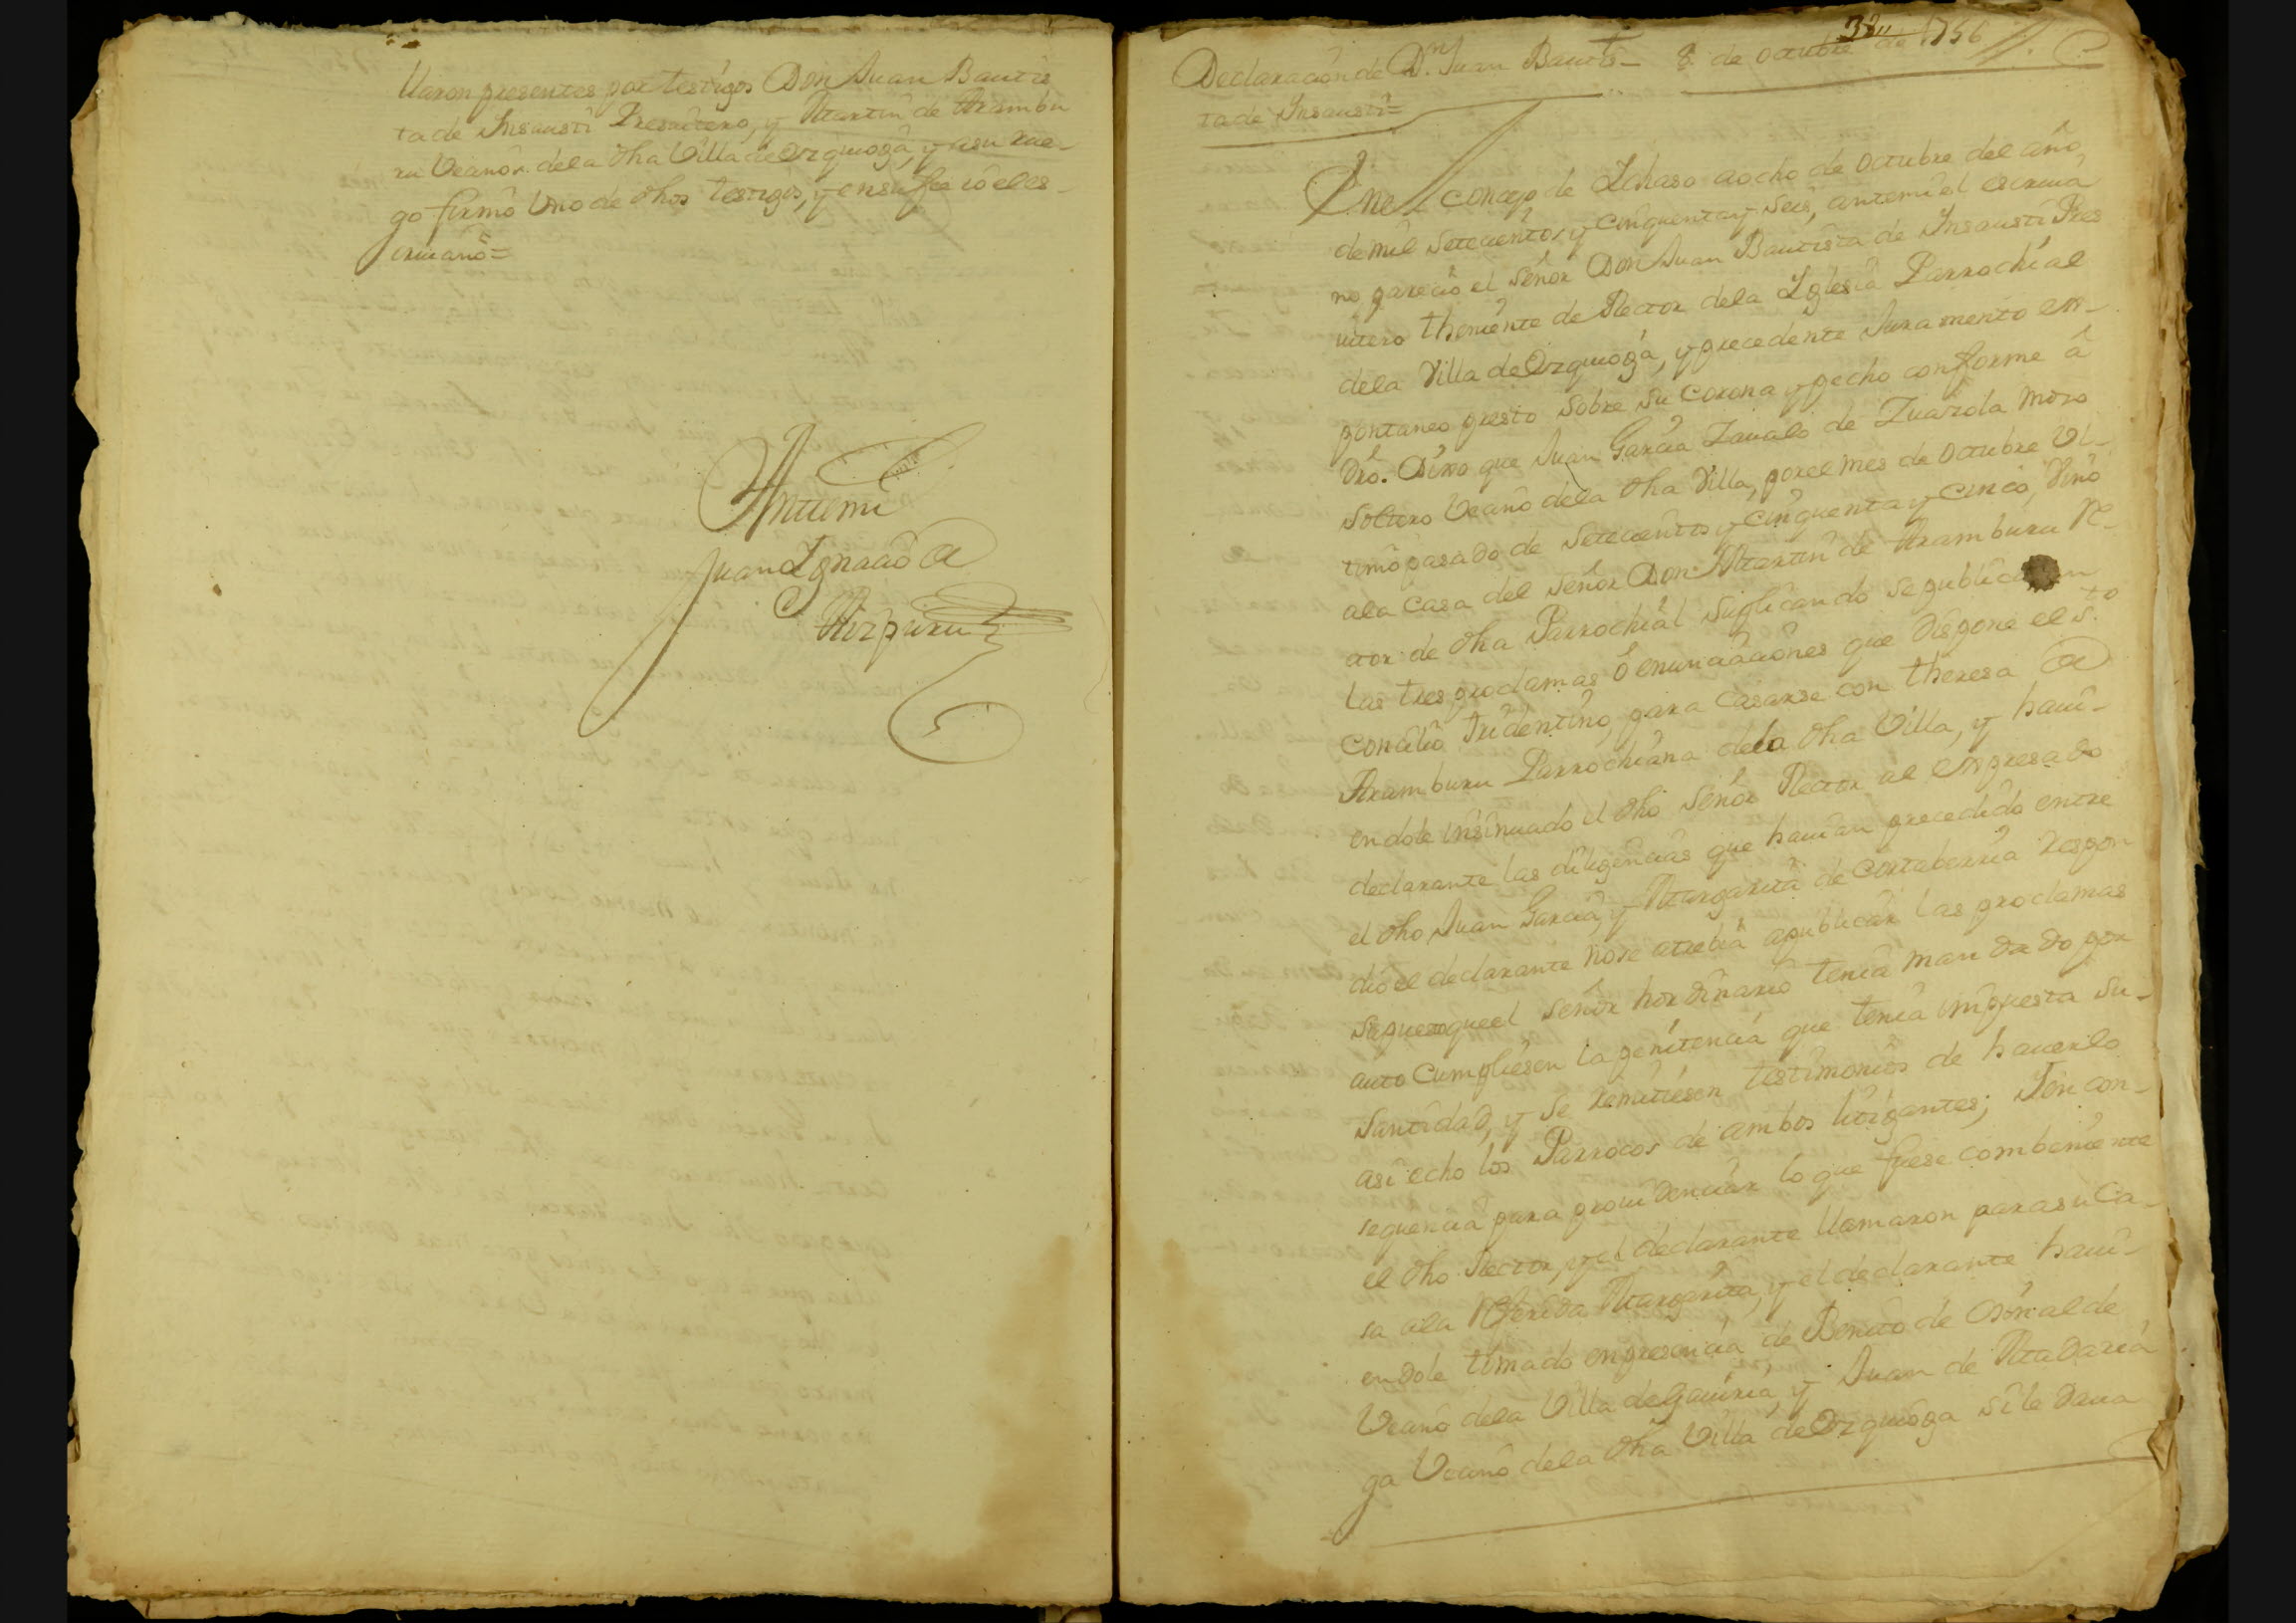 llaron presentes por testigos Don Juan Bautis
ta de Insausti Presuitero, y Martin de Arambu
ru Vecinos dela dha Villa de Ezquioga, y asu rue-
go firmò Uno de dhos testigos, y en su fee iò el es-
criuano=
Antemi
Juan Ignacio de
Aizpuru
32
Declaracion de Dn. Juan Bautis- 8. de octubre de 1756
ta de Insausti=
Enel concejo de Ichaso aocho de octubre del año
de mil setecientos y cinquenta y seis, antemi el escriua
no pareciò el señor Don Juan Bautista de Insausti Pres
uitero theniente de Rector dela Iglesia Parrochial
dela Villa de Ezquioga, y precedente Juramento es-
pontaneo presto sobre su corona y pecho conforme â
dro. Dixo que Juan Garcia Zaualo de Zuazola mozo
soltero Vecino dela dha Villa, por el mes de octubre Ul-
timo pasado de setecientos y cinquenta y cinco, Vino
ala casa del señor Don Martin de Aramburu Re-
ctor de dha Parrochial suplicando se publica en
las tres proclamas ô enunciaciones que dispone el s.to
concilio Tridentino, para casarse con theresa de
Aramburu Parrochiana dela dha Villa, y haui-
endole insinuado el dho señor Rector al expresado
declarante las diligencias que hauian precedido entre
el dho Juan Garcia, y Margarita de Cortaberria respon
diò el declarante nose atrebia apublicar las proclamas
supuesto que el señor hordinario tenia mandado por
auto Cumpliesen la penitencia que tenia impuesta su-
santidad, y se remitiesen testimonios de hauerlo
asi echo los Parrocos de ambos litigantes; Y en con-
sequencia para prouidenciar lo que fuese combeniente
el dho Rector, y el declarante llamaron para su Ca-
sa ala Referida Margarita, y el declarante haui-
endole tomado en presencia de Benito de Osinalde
Vecino dela Villa de Gauiria, y Juan de Madaria
ga Vecino dela dha Villa de Ezquioga si le daua